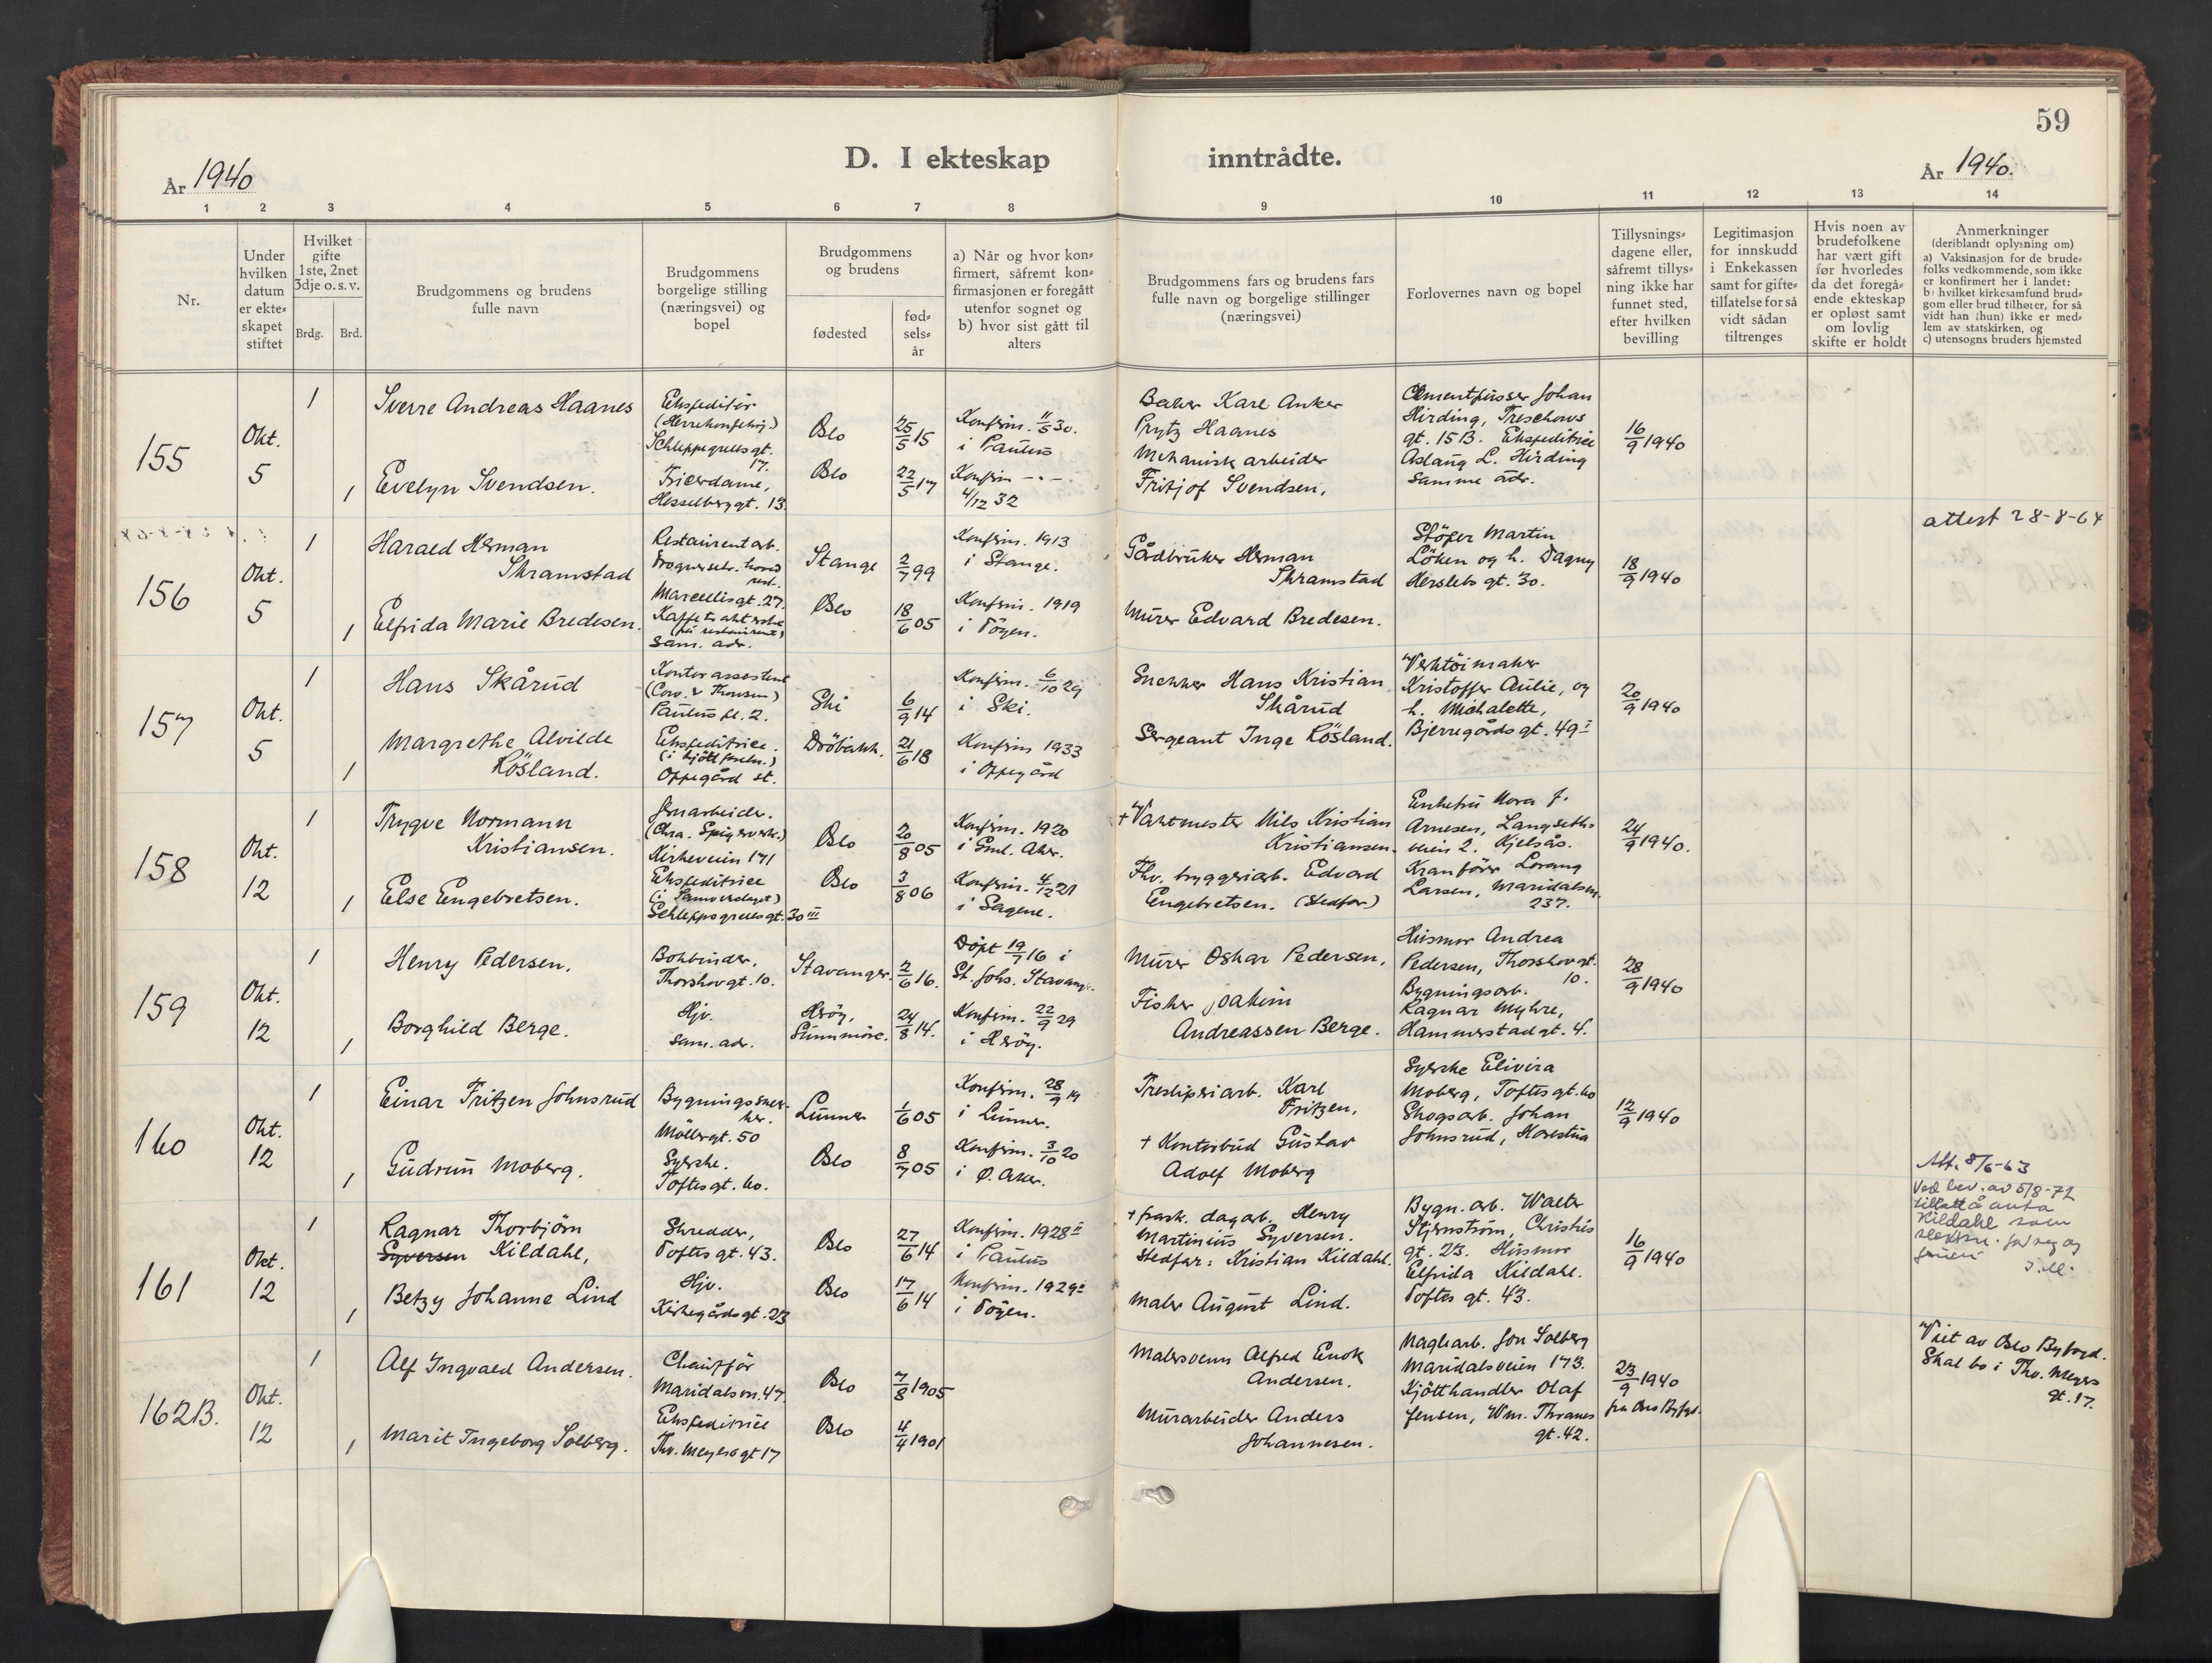 59
D. I ekteskap inntrådte.
År 1940
År 1940.
1 2 3 4 5 6 7 8 9 10 11 12 13 14
Nr.
Under
hvilken
datum
er ekte-
skapet
stiftet
Hvilket
gifte
1ste, 2net
3dje o. s. v.
Brdg. Brd.
Brudgommens og brudens
fulle navn
Brudgommens
borgelige stilling
(næringsvei) og
bopel
Brudgommens
og brudens
fødested
fød-
sels-
år
a) Når og hvor kon-
firmert, såfremt kon-
firmasjonen er foregått
utenfor sognet og
b) hvor sist gått til
alters
Brudgommens fars og brudens fars
fulle navn og borgelige stillinger
(næringsvei)
Forlovernes navn og bopel
Tillysnings-
dagene eller,
såfremt tillys-
ning ikke har
funnet sted,
efter hvilken
bevilling
Legitimasjon
for innskudd
i Enkekassen
samt for gifte-
tillatelse for så
vidt sådan
tiltrenges
Hvis noen av
brudefolkene
har vært gift
før hvorledes
da det foregå-
ende ekteskap
er opløst samt
om lovlig
skifte er holdt
Anmerkninger
(deriblandt oplysning om)
a) Vaksinasjon for de brude-
folks vedkommende, som ikke
er konfirmert her i landet:
b) hvilket kirkesamfund brud-
gom eller brud tilhører, for så
vidt han (hun) ikke er med-
lem av statskirken, og
c) utensogns bruders hjemsted
155
Okt.
5
1
1
Sverre Andreas Haanes
Evelyn Svendsen.
Ekspeditör
Schleppegrellsgt.
17.
Frisørdame,
Hesselberggt. 13.
Oslo
Oslo
25/5 15
22/5 17
Konfirm. 11/5 30.
i Paulus
Konfirm -"-
4/12 32
Baker Karl Anker
Prytz Haanes
Mekanisk arbeider
Fritjof Svendsen,
Cementpusser Johan
Hirding, Treschows
gt. 15 B. Ekspeditrice
Aslaug L. Hirding
samme adr.
16/9 1940
156
Okt.
5
1
1
Harald Herman
Skramstad
Elfrida Marie Bredesen.
Restaurentarb.
Frognerset. hoved
rest.
Marcellisgt. 27.
sam. adr.
Stange
Oslo
2/7 99
18/6 05
Konfirm. 1913
i Stange.
Konfirm. 1919
i Töyen.
Gårdbruker Herman
Skramstad
Murer Edvard Bredesen.
Stöper Martin
Löken og h. Dagny
Herslebs gt. 30.
18/9 1940
attest 28-8-64
157
Okt.
5
1
1
Hans Skårud
Margrethe Alvilde
Rösland.
Kontorassistent
Paulus pl. 2.
Ekspeditrice.
Oppegård st.
Ski
Dröbakk.
6/9 14
21/6 18
Konfirm. 6/10 29
i Ski.
Konfirm 1933
i Oppegård
Snekker Hans Kristian
Skårud
Sergeant Inge Rösland.
Verktöimaker
Kristoffer Aulie, og
h. Michalette,
Bjerregårds gt. 49 I
20/9 1940
158
Okt.
12
1
1
Trygve Normann
Kristiansen.
Else Engebretsen.
Jernarbeider.
(Chra. Spigerverk.)
Kirkeveien 171
Ekspeditrice
Schleppegrellsgt. 30 III
Oslo
Oslo
20/8 05
3/8 06
Konfirm. 1920
i Gml. Aker.
Konfirm. 4/12 21
i Sagene.
+ Vaktmester Nils Kristian
Kristiansen.
Fhv. bryggeriarb. Edvard
Engebretsen. (Stedfar)
Enkefru Nora J.
Arnesen, Langseths-
veien 2. Kjelsås.
Kranförer Lorang
Larsen, Maridalsvn.
237.
24/9 1940.
159
Okt.
12
1
1
Henry Pedersen.
Borghild Berge.
Bokbinder,
Thorshovgt. 10.
Hjv.
sam. adr.
Stavanger.
Heröy,
Sunnmöre.
2/6 16.
24/8 14.
Döpt 19/7 16 i
St. Johs. Stavang.
Konfirm. 22/9 29
i Heröy.
Murer Oskar Pedersen.
Fisker Joakim
Andreassen Berge.
Husmor Andrea
Pedersen, Thorshovgt.
10.
Bygningsarb.
Ragnar Myhre,
Hammerstadgt. 4.
28/9 1940
160
Okt.
12
1
1
Einar Fritzen Johnsrud
Gudrun Moberg.
Bygningssnek-
ker.
Möllergt. 50
Syerske.
Toftesgt. 60.
Lunner
Oslo
1/6 05
8/7 05
Konfirm. 28/9 19
i Lunner.
Konfirm. 3/10 20
i Ø. Aker.
Tresliperiarb. Karl
Fritzen,
+ Kontorbud Gustav
Adolf Moberg
Syerske Elivira
Moberg, Toftesgt. 60
Skogsarb. Johan
Johnsrud, Harestua
12/9 1940
161
Okt.
12
1
1
Ragnar Thorbjörn
Syversen Kildahl,
Betzy Johanne Lind
Skredder,
Toftes gt. 43.
Hjv.
Kirkegårdsgt. 23
Oslo
Oslo
27/6 14
17/6 14
Konfirm. 1928 II
i Paulus
Konfirm. 1929 I
i Töyen.
+ frask. dagarb. Henry
Martinius Syversen.
Stedfar: Kristian Kildahl.
Maler August Lind.
Bygn. arb. Walter
Stjernström, Christies
gt. 23. Husmor
Elfrida Kildahl.
Toftes gt. 43.
16/9 1940
Att. 8/6-63
Ved bev. av 5/8-72
tillatt å anta
Kildahl som
slektsn. for seg og
162B.
Okt.
12
1
1
Alf Ingvald Andersen.
Marit Ingeborg Solberg.
Chaufför
Maridalsvn. 47.
Ekspeditrice
Thv. Meyersgt 17
Oslo
Oslo
7/8 1905
4/4 1901
Malersvenn Alfred Enok
Andersen.
Murarbeider Anders
Johannesen.
Maglearb. Jon Solberg
Maridalsveien 173.
Kjötthandler Olaf
Jensen, Wm. Thranes
gt. 42.
23/9 1940
fra Oslo Byfgd.
Viet av Oslo Byfogd.
Skal bo i Thv. Meyers
gt. 17.